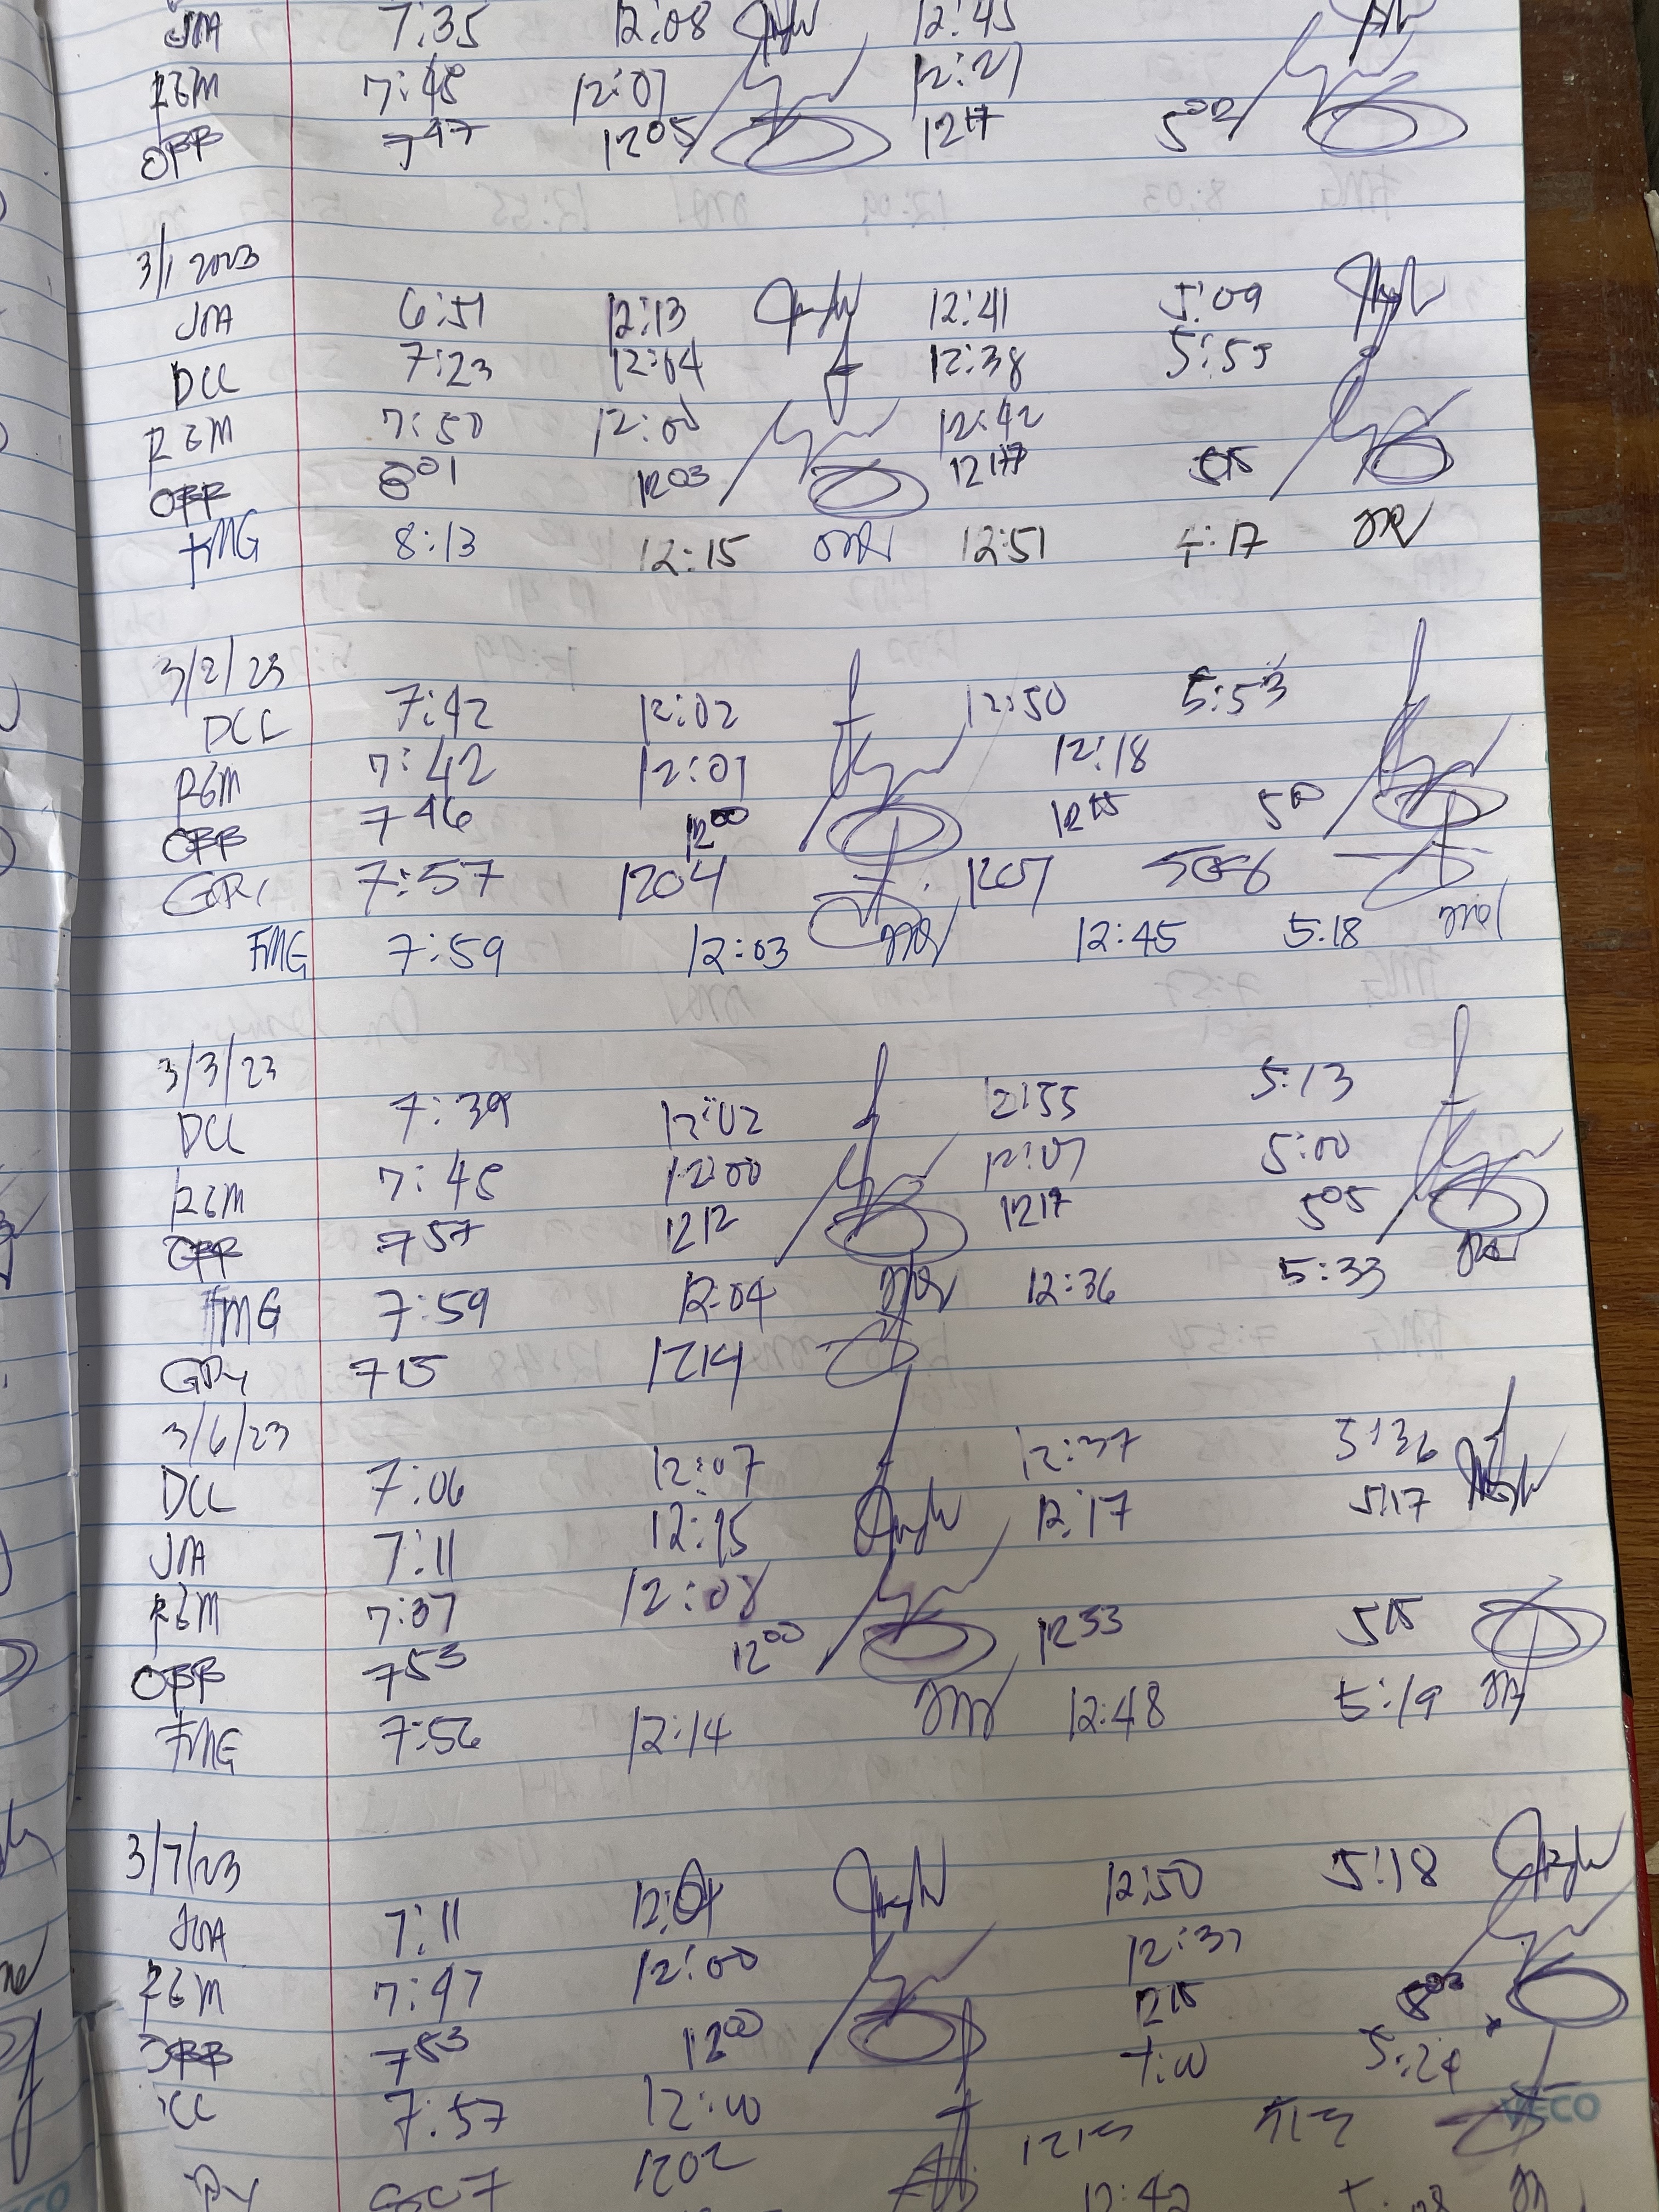 JMA 7:35 12:08 12:45
REM 7:48 12:07 12:27
OPP 7 47 12 05 12 17 5 02
3/1 2023
JMA 6:51 12:13 12:41 5:09
DCC 7:23 12:04 12:38 5:55
REM 7:50 12:00 12:42
OPP 8 01 12 03 12 17
FMG 8:13 12:15 12:51 4:17
3/2/23
DCC 7:42 12:02 12:50 5:53
REM 7:42 12:07 12:18
OPP 7 46 12 00 12 15 5 00
7:57 1204 1207 506
FMG 7:59 12:03 12:45 5:18
3/3/23
DCC 7:39 12:02 12:55 5:13
REM 7:48 12:00 12:07 5:00
OPP 7 57 12 12 12 17 5 05
FMG 7:59 12:04 12:36 5:33
715 1214
3/6/23
DCC 7:06 12:07 12:37 5:36
JMA 7:11 12:15 12:17 5:17
REM 7:37 12:08
OPP 7 53 12 00 12 53 5 15
FMG 7:56 12:14 12:48 5:19
3/7/23
JMA 7:11 12:50 5:18
REM 7:47 12:00 12:37
OPP 7 53 12 00 12 15
7:57 12:00 1:00 5:24
VECO
1202
12:42